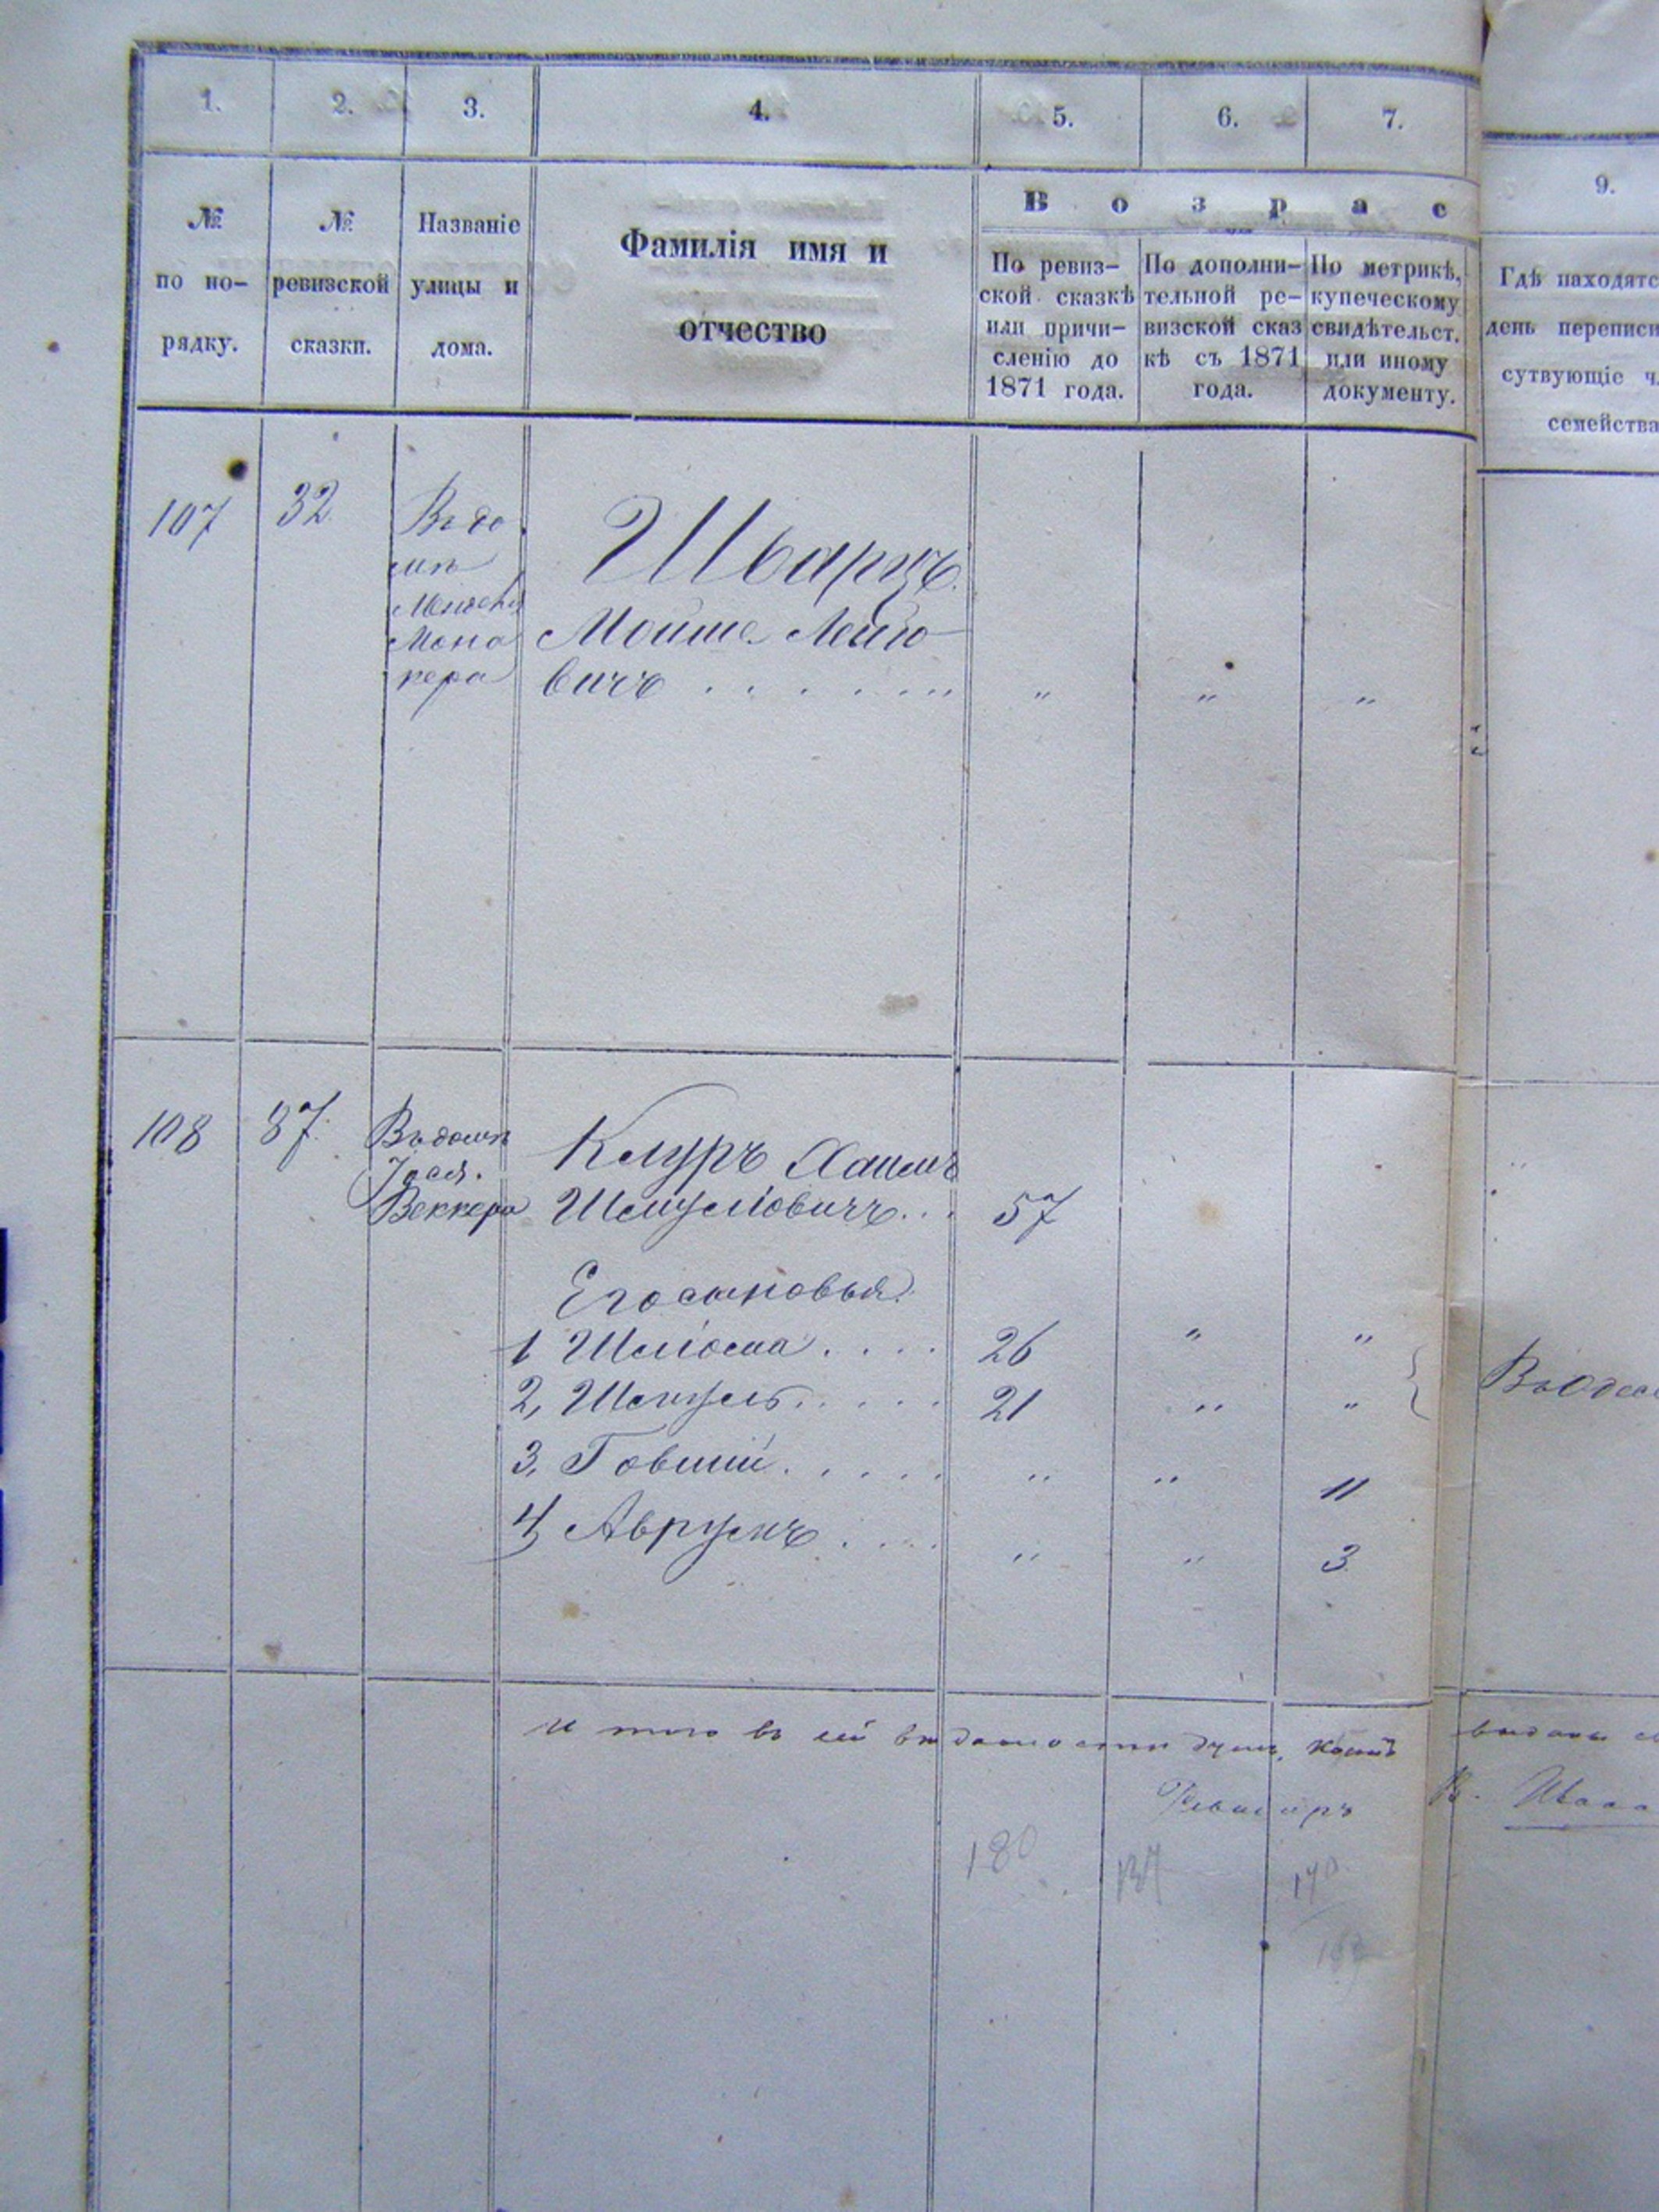 1. 2. 3. 4. 5. 6. 7.
9.
№ по по-рядку.
№ ревизской сказки.
Названіе улицы и дома.
Фамилія имя и
отчество
Возрас
По ревиз-
ской сказкѣ
или причи-
сленію до
1871 года.
По дополни-
тельной ре-
визской сказ
кѣ съ 1871
года.
По метрикѣ,
купеческому
свидѣтельст.
или иному
документу.
Гдѣ находятс
день переписи
сутвующіе ч
семейства
107 32 Въ до
мѣ
Мона
кера
Шварцъ
Мойше Лейбо
вичъ . . . . . . . " " "
108 87. Въ домѣ
Веккера
Клуръ Хаимъ
Шмулевичъ . . . 57
Его сыновья:
1 Шлiома . . . . 26 " "
2, Шмуль . . . . . 21 " "
3, Говшій . . . . . " " 11
4, Аврумъ . . . . " " 3
Въ Одес
И того въ сей
180